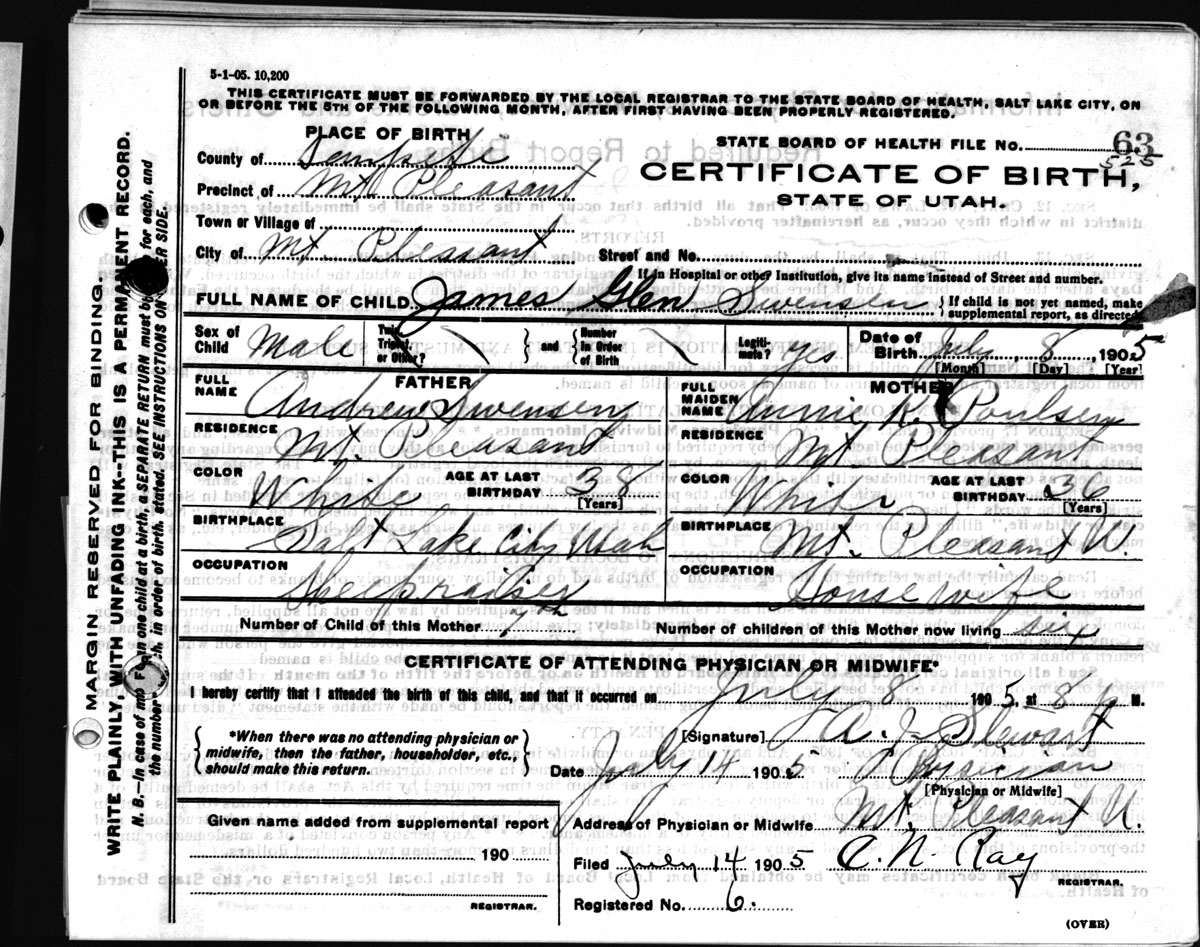 5-1-05. 10,200
THIS CERTIFICATE MUST BE FORWARDED BY THE LOCAL REGISTRAR TO THE STATE BOARD OF HEALTH, SALT LAKE CITY, ON
OR BEFORE THE 5TH OF THE FOLLOWING MONTH, AFTER FIRST HAVING BEEN PROPERLY REGISTERED.
PLACE OF BIRTH
STATE BOARD OF HEALTH FILE NO. 63
525
County of Sanpete
CERTIFICATE OF BIRTH,
Precinct of Mt Pleasant
STATE OF UTAH.
Town or Village of
City of Mt. Pleasant Street and No.
If in Hospital or other Institution, give its name instead of Street and number.
FULL NAME OF CHILD James Glen Swensen { If child is not yet named, make supplemental report, as directed
Sex of Child Male Twin, Triplet, or Other? } and { Number in Order of Birth Legiti-mate? Yes Date of Birth July 8 1905
[Month] [Day] [Year]
FATHER
MOTHER
FULL NAME Andrew Swensen
FULL MAIDEN NAME Annie K. Poulsen
RESIDENCE Mt. Pleasant
RESIDENCE Mt Pleasant
COLOR White AGE AT LAST BIRTHDAY 38 [Years]
COLOR White AGE AT LAST BIRTHDAY 36 [Years]
BIRTHPLACE Salt Lake City Utah
BIRTHPLACE Mt. Pleasant U.
OCCUPATION Sheepraiser
OCCUPATION House wife
Number of Child of this Mother 7th
Number of children of this Mother now living six
CERTIFICATE OF ATTENDING PHYSICIAN OR MIDWIFE*
I hereby certify that I attended the birth of this child, and that it occurred on July 8 1905, at 8 M.
*When there was no attending physician or midwife, then the father, householder, etc., should make this return.
[Signature] A. J. Stewart
Date July 14 1905 Physician
[Physician or Midwife]
Given name added from supplemental report
190
REGISTRAR.
Address of Physician or Midwife Mt. Pleasant U.
Filed July 14 1905 C. N. Ray
REGISTRAR.
Registered No. 6.
(OVER)
MARGIN RESERVED FOR BINDING.
WRITE PLAINLY, WITH UNFADING INK--THIS IS A PERMANENT RECORD.
N. B.—In case of more in one child at a birth, a SEPARATE RETURN must be for each, and
the number in order of birth, stated SEE INSTRUCTIONS ON SIDE.